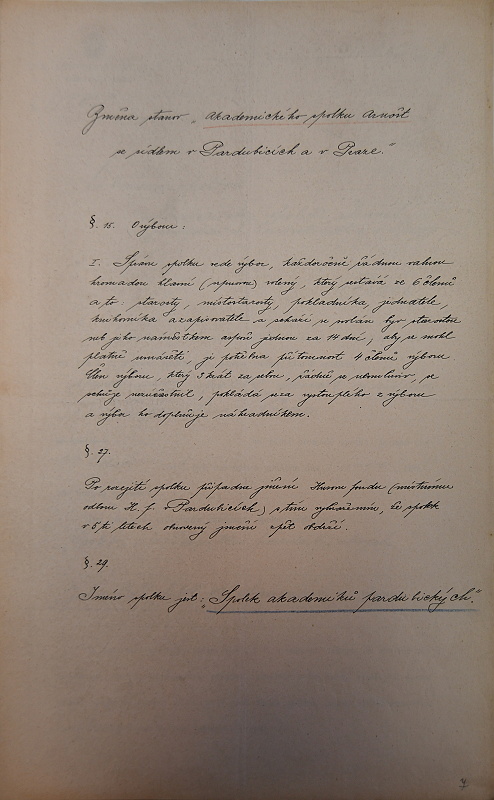 Změna stanov „Akademického spolku Arnošt
se sídlem v Pardubicích a v Praze."
§. 15. O výboru:
I. Správu spolku vede výbor, každoročně řádnou valnou
hromadou klasní (upravou) volený, který sestává ze 6 členů
a to: starosty, místostarosty, pokladníka, jednatele,
knihovníka a zapisovatele a schází se volán byv starostou
neb jeho náměstkem aspoň jednou za 14 dní; aby se mohl
platně usnášeti, je potřebna přítomnost 4 členů výboru
Člen výboru, který 3 krát za sebou, řádně se neomluviv, se
schůze nezúčastnil, pokládá se za vystouplého z výboru
a výbor ho doplňuje náhradníkem.
§. 27.
Po rozejití spolku připadne jmění Husovu fondu (místnímu
odboru H. f. v Pardubicích) s tím vyhrazením, že spolek
v 5ti letech obnovený jmění zpět obdrží.
§. 29.
Jméno spolku jest: „Spolek akademiků pardubických."